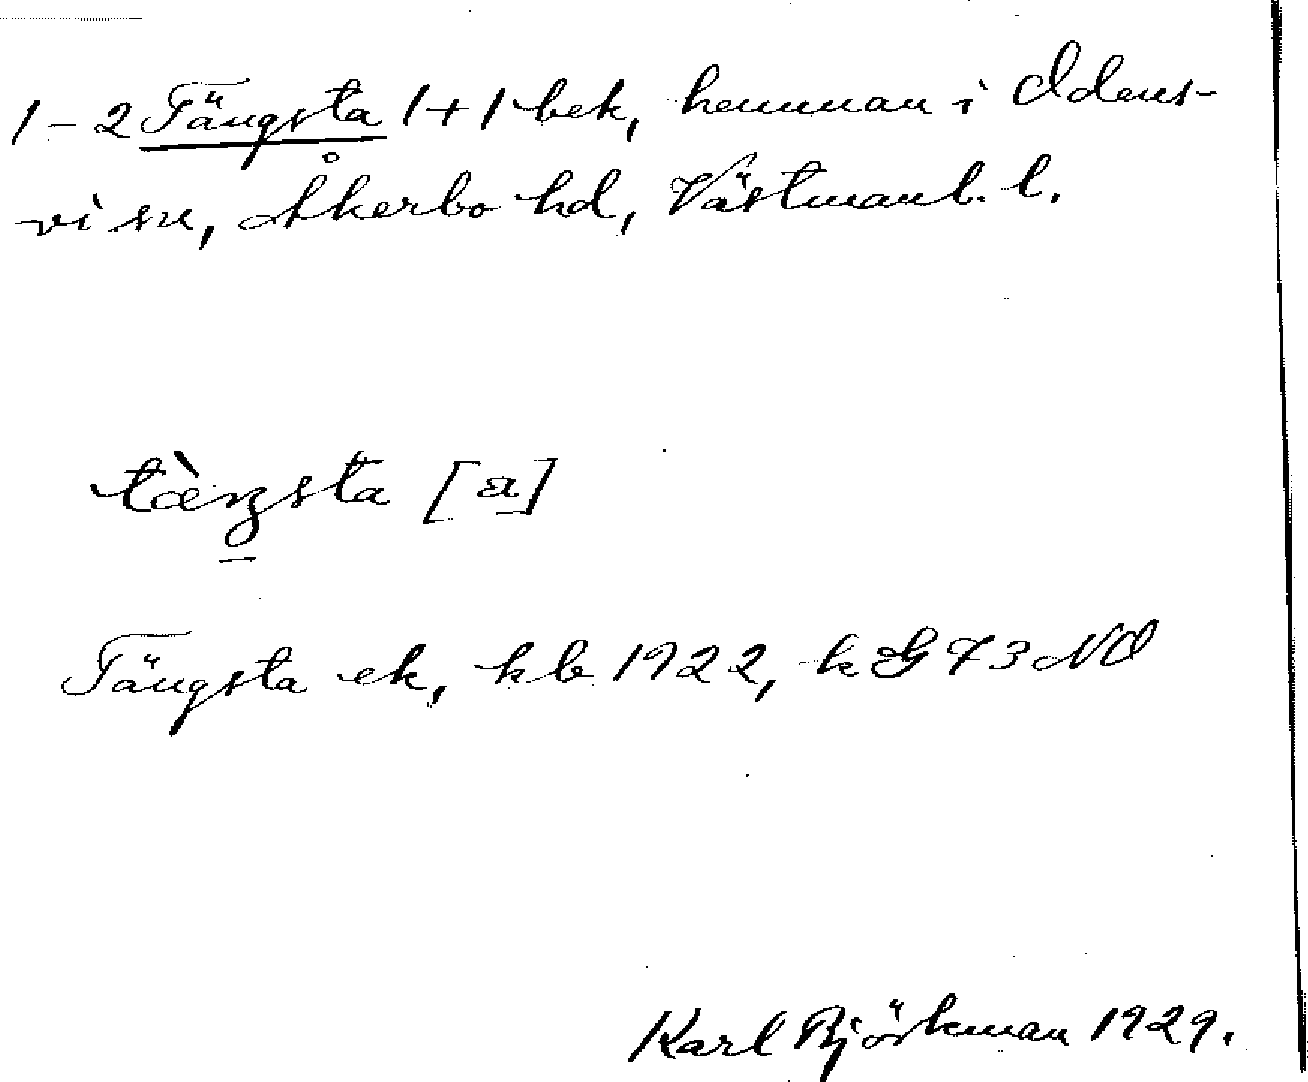 1-2 Tängsta 1+1 bek, hemman i Odens-
vi sn, Åkerbo hd, Västmanl. l.
tàŋsta [a]
Tängsta ek, kb 1922, k G 73 NO
Karl Björkman 1929.